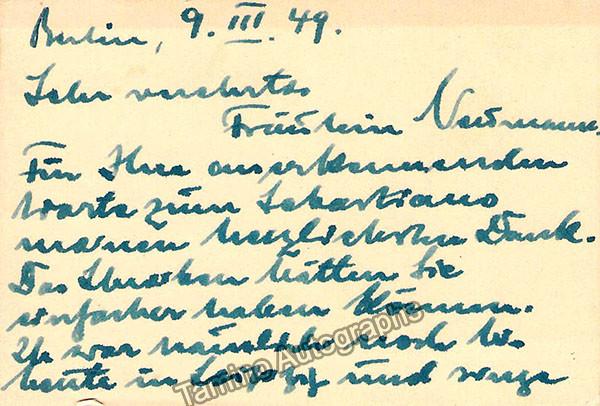 Berlin, 9. III. 49.
Sehr verehrtes
Fräulein Neumann.
Für Ihre anerkennenden
Worte zum Sebastiano
meinen herzlichsten Dank.
Das hätten Sie
einfacher haben können.
Ich war nämlich noch bis
heute in Leipzig und
Tamino Autographs